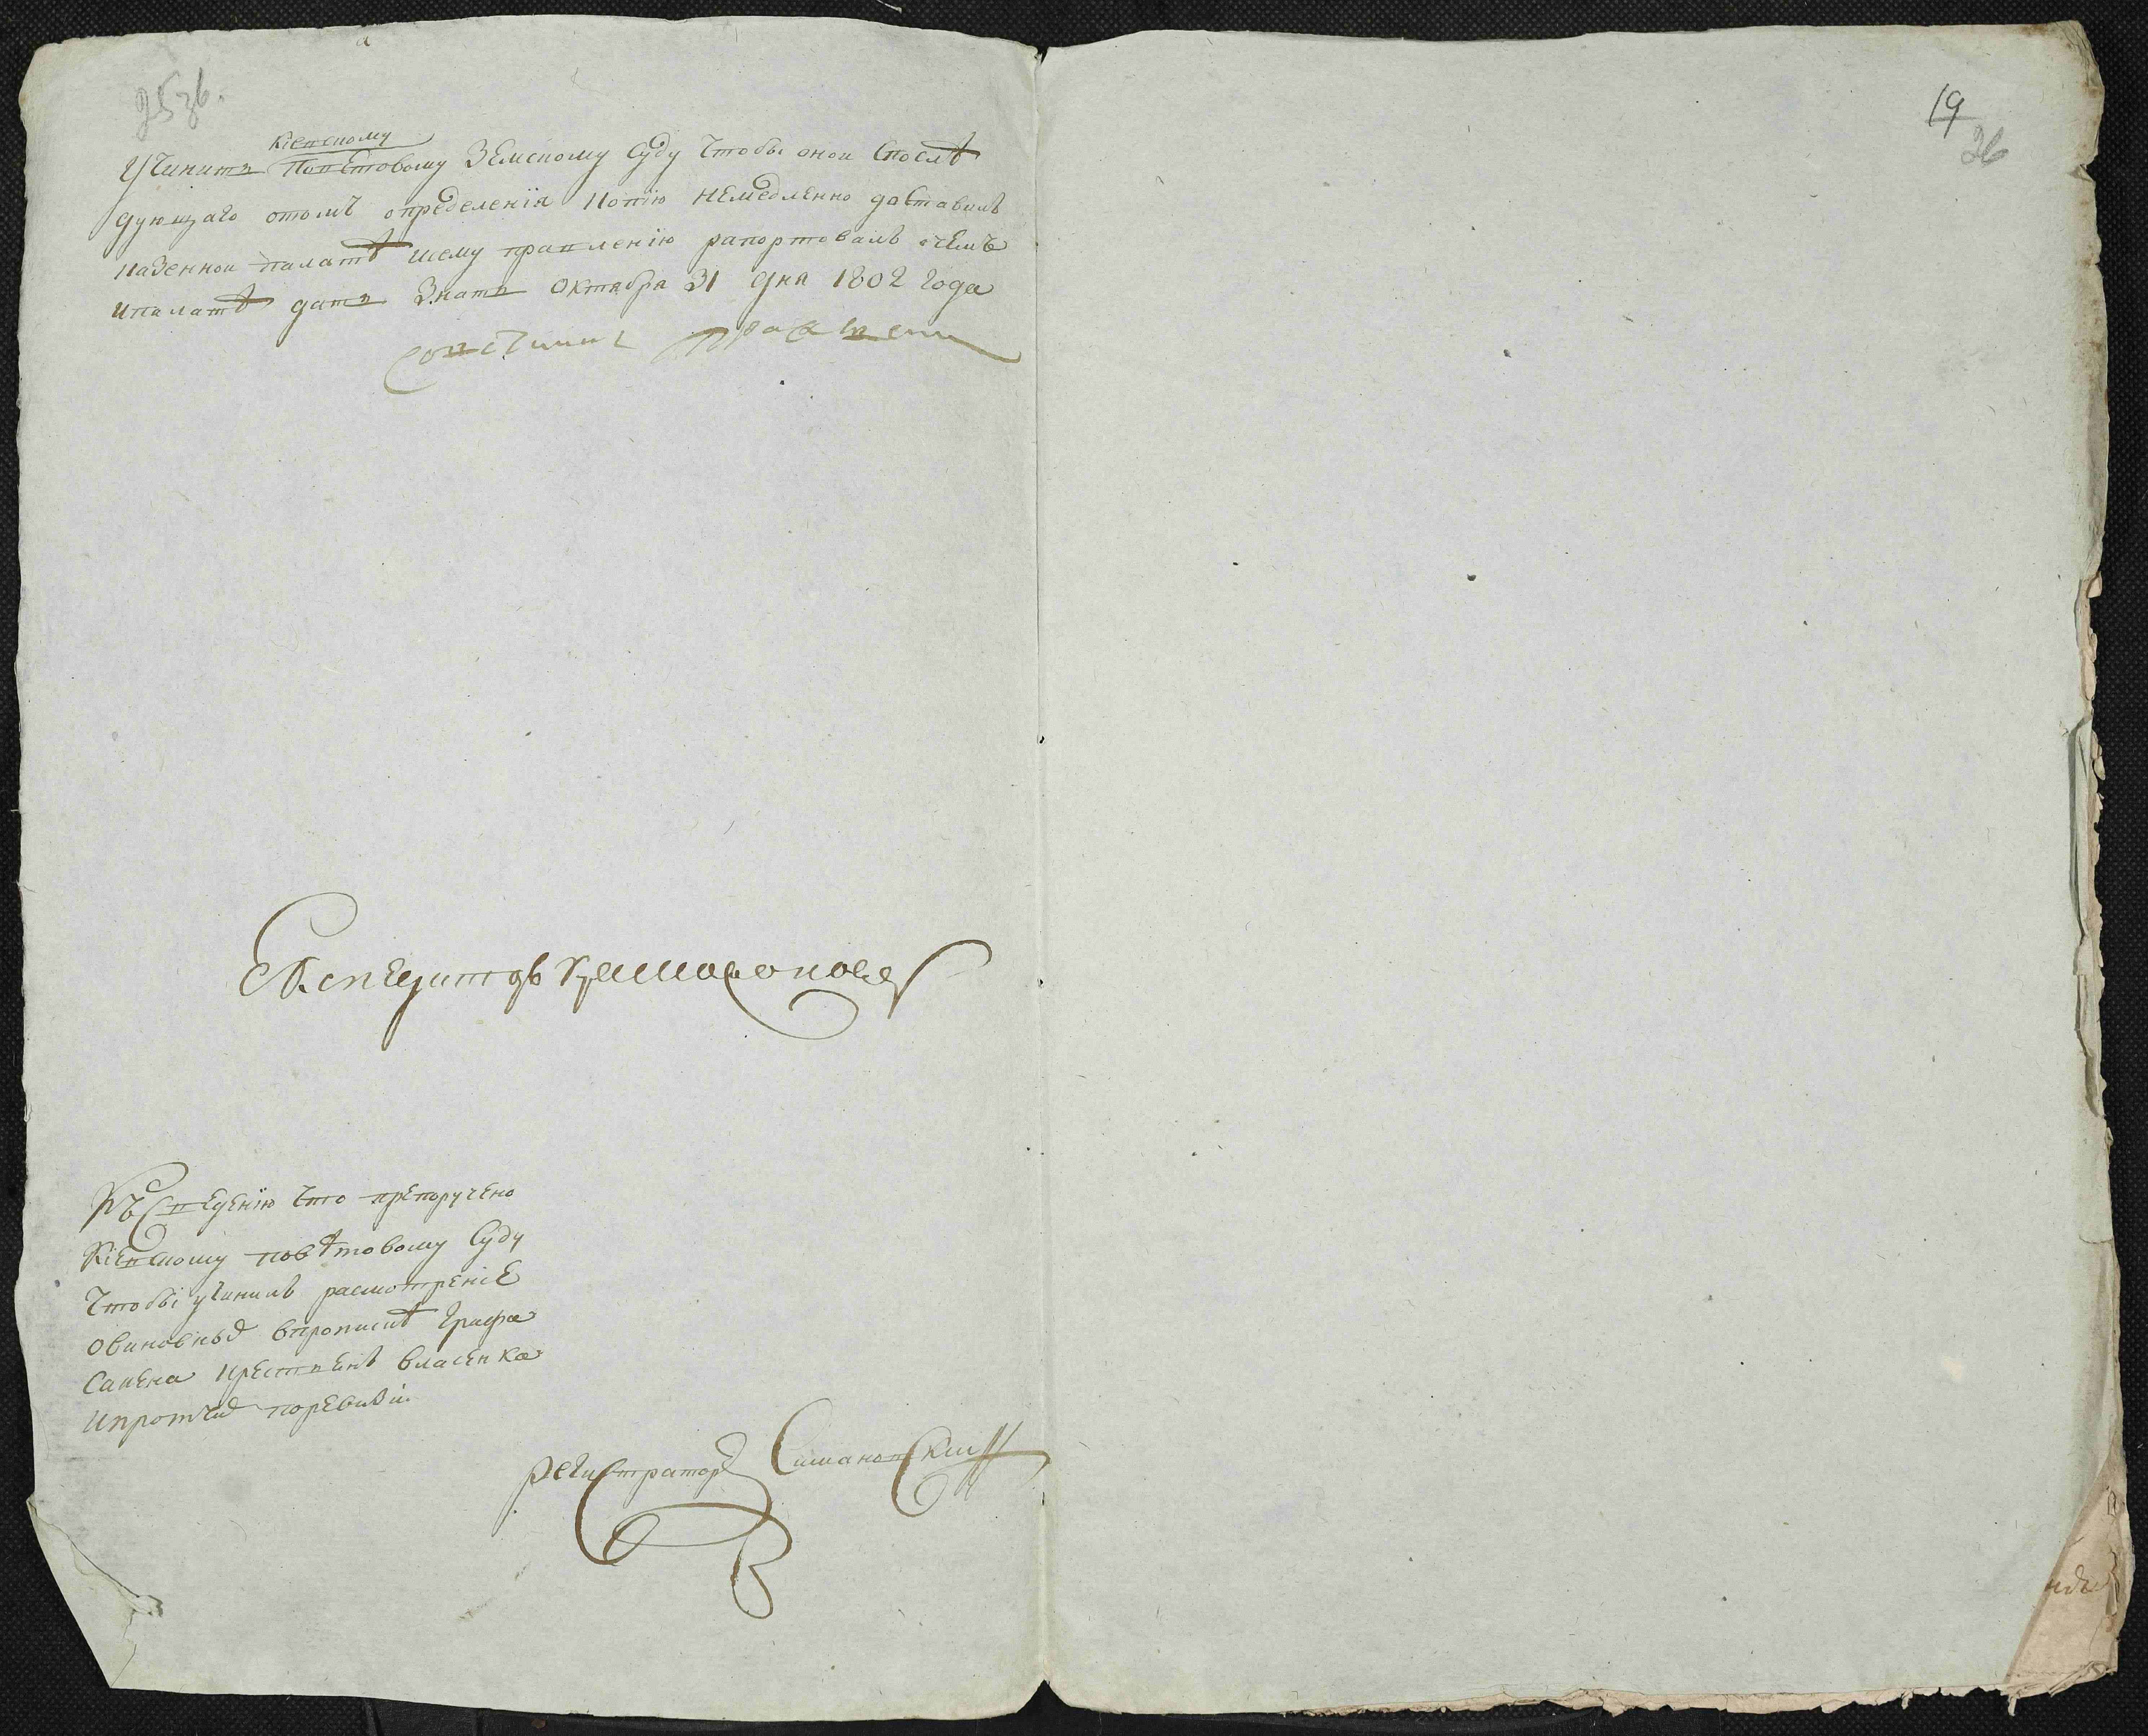 25 зв.
Кіевскому
Учинить Повѣтовому Земскому Суду Чтобы оной Спослѣ
дующаго отомъ определенія Копію немедленно доставилъ
казенной палатѣ и сему правленію рапортовалъ очемъ
и палатѣ дать Знать Октября 31 дня 1802 года
Советникъ
Експедиторъ
Къ Сведенію что препоручено
Кіевскому повѣтовому Суду
Чтобы учинилъ расмотреніе
овиновныхъ впрописке графа
Сапега крестьянъ власенка
ипротчихъ поревизіи
регистраторъ Симановский
19
26